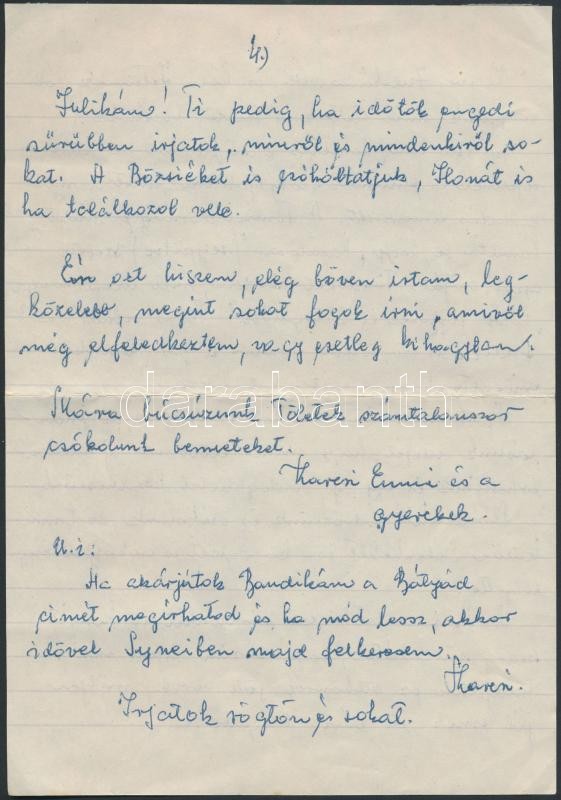 4.)
Julikám! Ti pedig, ha időtök engedi
sürübben irjatok, minről és mindenkiről so-
kat. A Bözsiéket is csókoltatjuk, Ilonát is
ha találkozol vele.
Én azt hiszem, elég böven irtam, leg-
közelebb, megint sokat fogok irni, amiről
még elfeledkeztem, vagy esetleg kihagytam.
Mára búcsúzunk Töletek számtalanszor
csókolunk benneteket.
Karcsi Emmi és a
gyerekek.
U.i:
Ha akárjátok Bandikám a Bátyád
cimét megirhatod és ha mód lessz, akkor
idövel Syneiben majd felkeresem.
Karcsi.
Irjatok rögtön és sokat.
darabanth